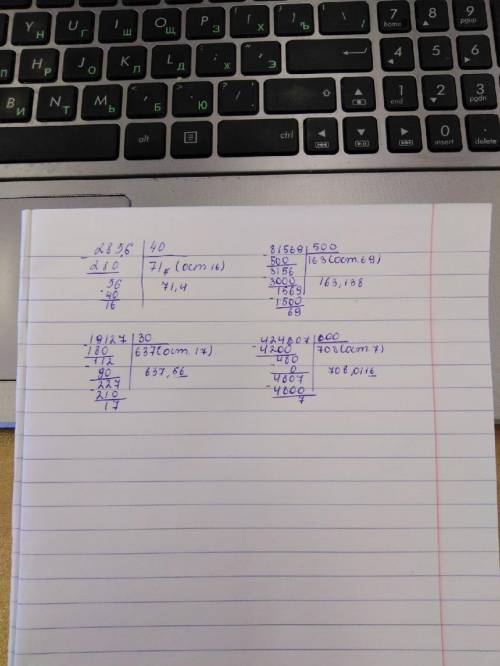 7 home 8 9 pgup
Y Н U Г I Ш O Щ P З { [ Х } ] Ъ | \ /
4 5 6
H Р J О K Л L Д : ; Ж " ' Э
1 end 2 3 pgdn
B И N Т M Ь < , Б > . Ю ? /
alt ctrl 0 insert . delete
2856 40
280 71 (ост 16)
56 71,4
40
16
81569 500
500 163 (ост 69)
3156 163,138
3000
1569
1500
69
19127 30
180 637 (ост. 17)
112 637,56
90
227
210
17
424807 600
4200 708 (ост 7)
480 708,0116
0
4807
4800
7